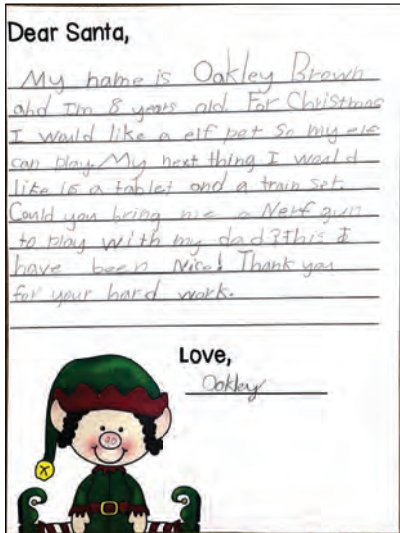 Dear Santa,
My name is Oakley Brown
and Im 8 years old. For Christmas
I would like a elf pet So my elf
can play. My next thing I would
like is a tablet and a train set.
Could you bring me a Nerf gun
to play with my dad? this I
have been Nice! Thank you
for your hard work.
Love,
Oakley